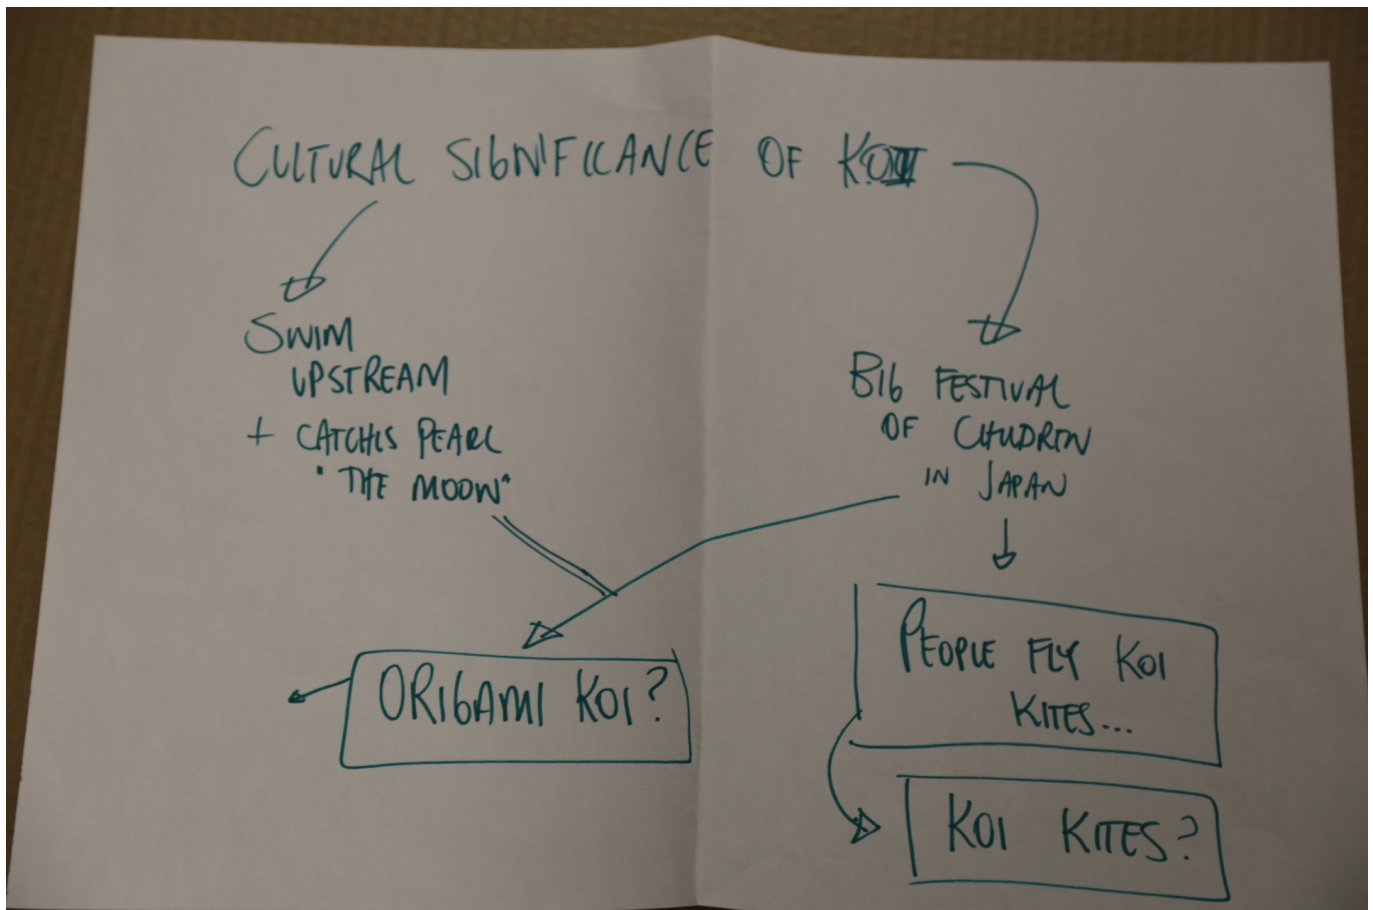 CULTURAL SIGNIFICANCE OF KOI
SWIM
UPSTREAM
+ CATCHES PEARL
"THE MOON"
BIG FESTIVAL
OF CHILDREN
IN JAPAN
ORIGAMI KOI?
PEOPLE FLY KOI
KITES...
KOI KITES?